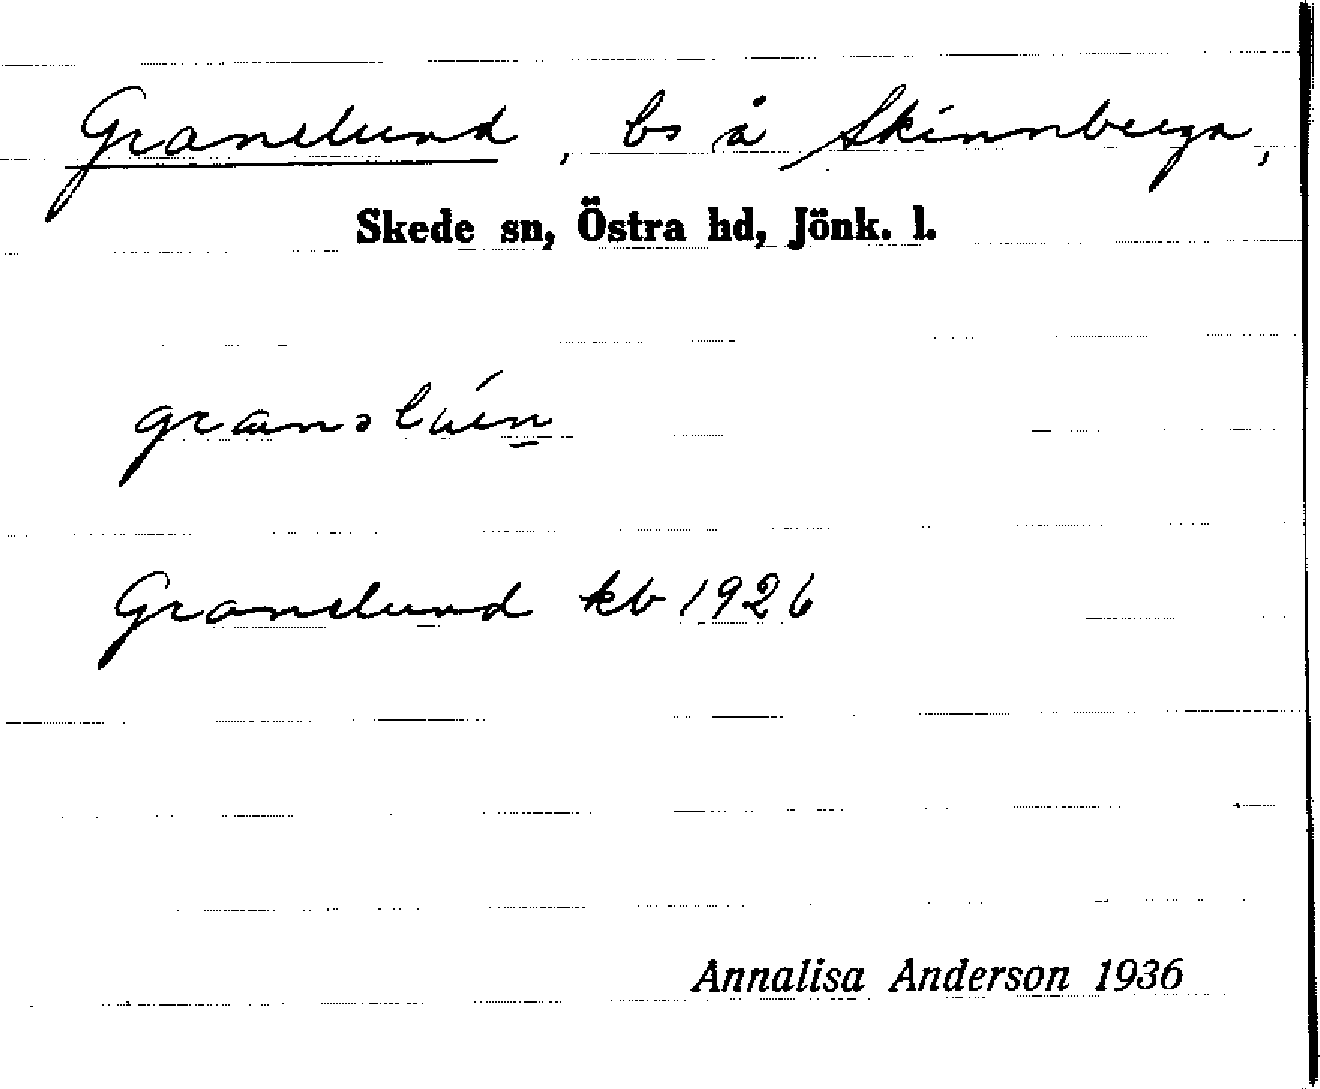 Granelund, bs å Skinnberga,
Skede sn, Östra hd, Jönk. l.
Granelund kb 1926
Annalisa Anderson 1936